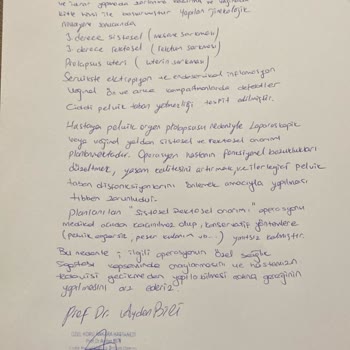 kitle hissi ile başvurmuştur. Yapılan jinekolojik
muayene sonucunda
3. derece sistosel (mesane sarkması)
3. derece rektosel (rektum sarkması)
Prolapsus uteri (uterin sarkması)
Servikste ektropion ve enflamasyon
Vaginal ön ve arka kompartmanlarda defektler
Ciddi pelvik taban yetmezliği tespit edilmiştir.
Hastaya pelvik organ prolapsusu nedeniyle Laparoskopik
veya vajinal yoldan sistosel ve rektosel onarımı
planlanmaktadır. Operasyon hastanın fonksiyonel bozuklukları
düzeltmek, yaşam kalitesini artırmak ve ilerleyici pelvik
taban disfonksiyonlarını önlemek amacıyla yapılması
tıbben zorunludur.
Planlanan "Sistosel Rektosel onarımı" operasyonu
medikal açıdan kaçınılmaz olup, konservatif yöntemlere
(pelvik egzersiz, peser kullanımı vb..) yanıtsız kalmıştır.
Bu nedenle; ilgili operasyonun Özel Sağlık
Sigortası kapsamında onaylanmasını ve hastamızın
tedavisi gecikmeden yapılabilmesi adına gereğinin
yapılmasını arz ederiz.
Prof Dr. Aydan Biri